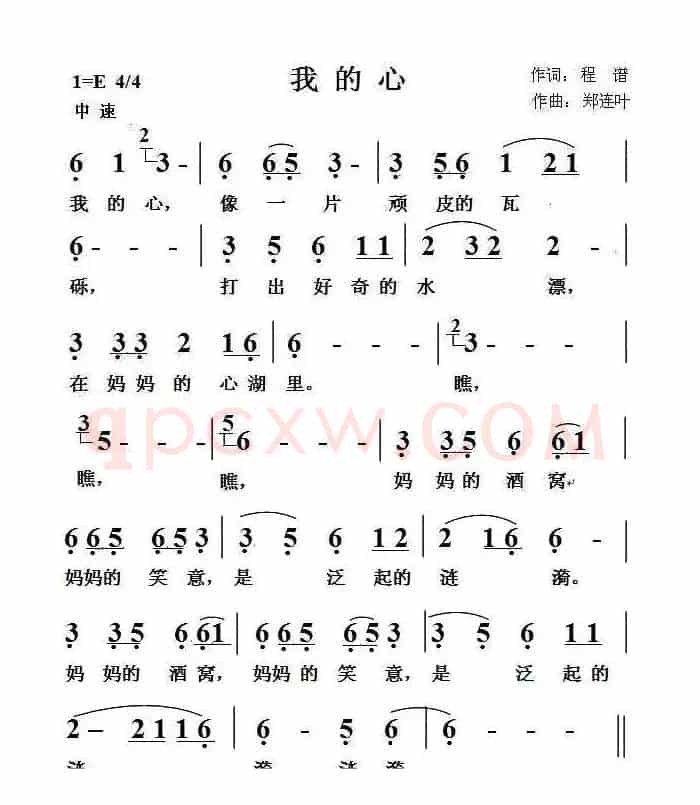 1=E 4/4 我的心 作词：程谱
中速 作曲：郑连叶
6 1 2 3 - | 6 6 5 3 - | 3 5 6 1 2 1 |
我 的 心， 像 一 片 顽 皮的 瓦
6 - - - | 3 5 6 1 1 | 2 3 2 2 - |
砾， 打 出 好 奇的 水 漂，
3 3 3 2 1 6 | 6 - - - | 2 3 - - - |
在 妈 妈 的 心 湖 里。 瞧，
3 5 - - - | 5 6 - - - | 3 3 5 6 6 1 |
瞧， 瞧， 妈 妈 的 酒 窝
qpcxw.COM
6 6 5 6 5 3 | 3 5 6 1 2 | 2 1 6 6 - |
妈妈的 笑 意，是 泛 起的 涟 漪。
3 3 5 6 6 1 | 6 6 5 6 5 3 | 3 5 6 1 1 |
妈 妈 的 酒 窝，妈妈 的 笑 意，是 泛 起 的
2 - 2 1 1 6 | 6 - 5 6 | 6 - - - ‖
涟 漪 涟 漪